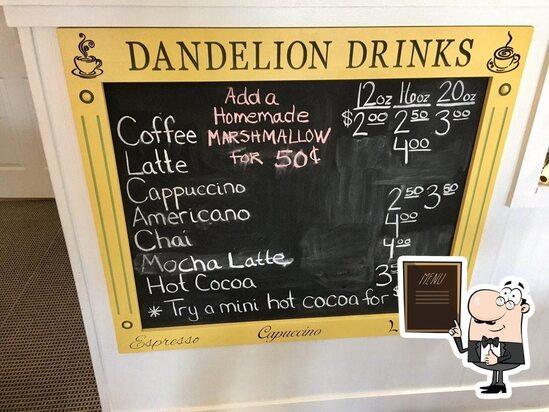 DANDELION DRINKS
12oz 16oz 20oz
Add a
Homemade
MARSHMALLOW
FOR 50¢
Coffee $2.00 2.50 3.00
Latte 4.00
Cappuccino
Americano 2.50 3.50
Chai 4.00
Mocha Latte 4.00
Hot Cocoa 3
* Try a mini hot cocoa for $
MENU
Espresso Capuccino L